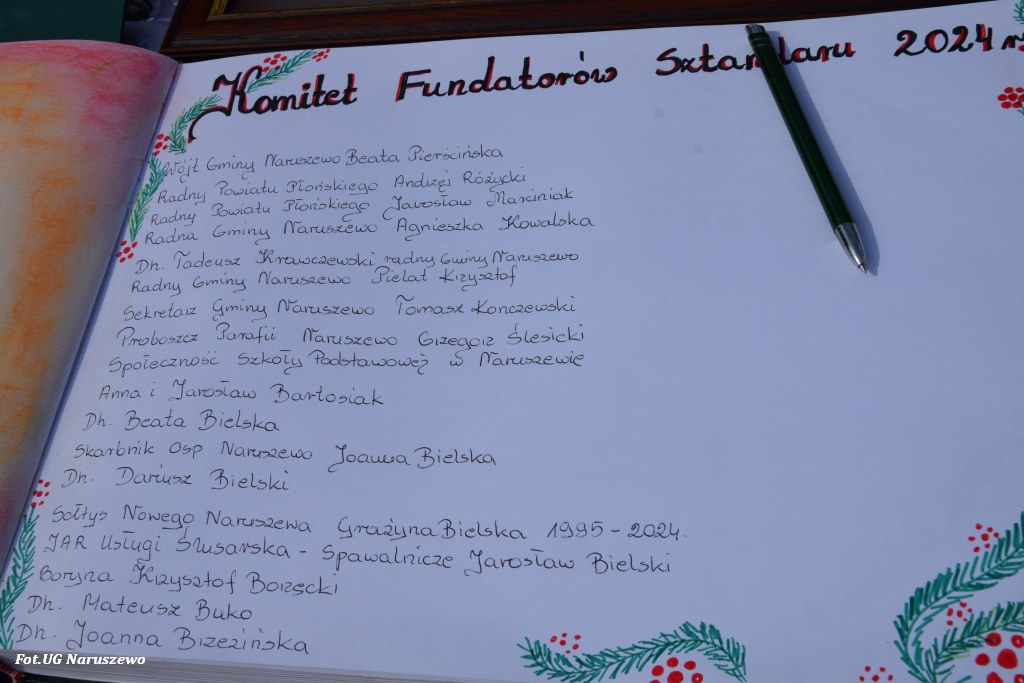 Komitet Fundatorów Sztandaru 2024 r.
Wójt Gminy Naruszewo Beata Pierścińska
Radny Powiatu Płońskiego Andrzej Różycki
Radny Powiatu Płońskiego Jarosław Marciniak
Radna Gminy Naruszewo Agnieszka Kowalska
Dh. Tadeusz Krawczewski radny Gminy Naruszewo
Radny Gminy Naruszewo Pielat Krzysztof
Sekretarz Gminy Naruszewo Tomasz Konczewski
Proboszcz Parafii Naruszewo Grzegorz Ślesicki
Społeczność Szkoły Podstawowej w Naruszewie
Anna i Jarosław Bartosiak
Dh. Beata Bielska
Skarbnik Osp Naruszewo Joanna Bielska
Dh. Dariusz Bielski
Sołtys Nowego Naruszewa Grażyna Bielska 1995 - 2024.
JAR Usługi Ślusarska - Spawalnicze Jarosław Bielski
Boryna Krzysztof Borzęcki
Dh. Mateusz Buko
Dh. Joanna Brzezińska
Fot.UG Naruszewo